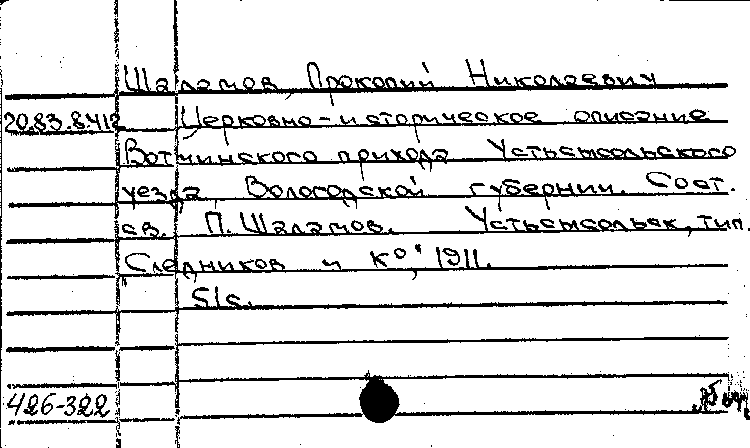 Шаламов, Прокопий Николаевич
20.83.8412 Церковно-историческое описание
Вотчинского прихода Устьсысольского
уезда, Вологодской губернии. Сост.
св. П. Шаламов. Устьсысольск, тип.
"Следников и К°", 1911.
51с.
426-322